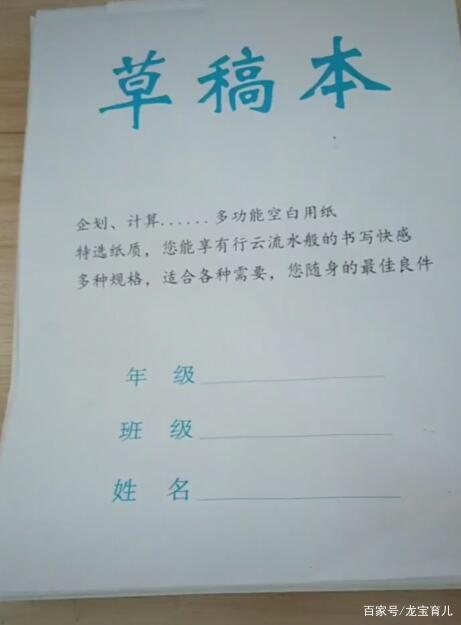 草稿本
企划、计算......多功能空白用纸
特选纸质，您能享有行云流水般的书写快感
多种规格，适合各种需要，您随身的最佳良件
年 级
班 级
姓 名
百家号/龙宝育儿